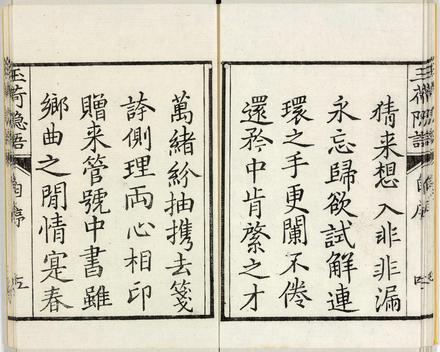 猜来想入非非漏
永忘歸欲試解連
環之手更闌不倦
還矜中肯綮之才
萬緒紛抽携去箋
誇側理両心相印
贈来管號中書雖
鄉曲之閒情寔春
玉荷隐语
自序